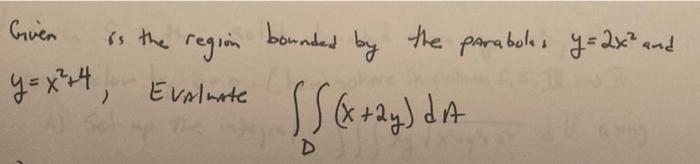 Given is the region bounded by the parabolas y=2x² and
y=x²+4, Evaluate ∫∫(x+2y)dA
D